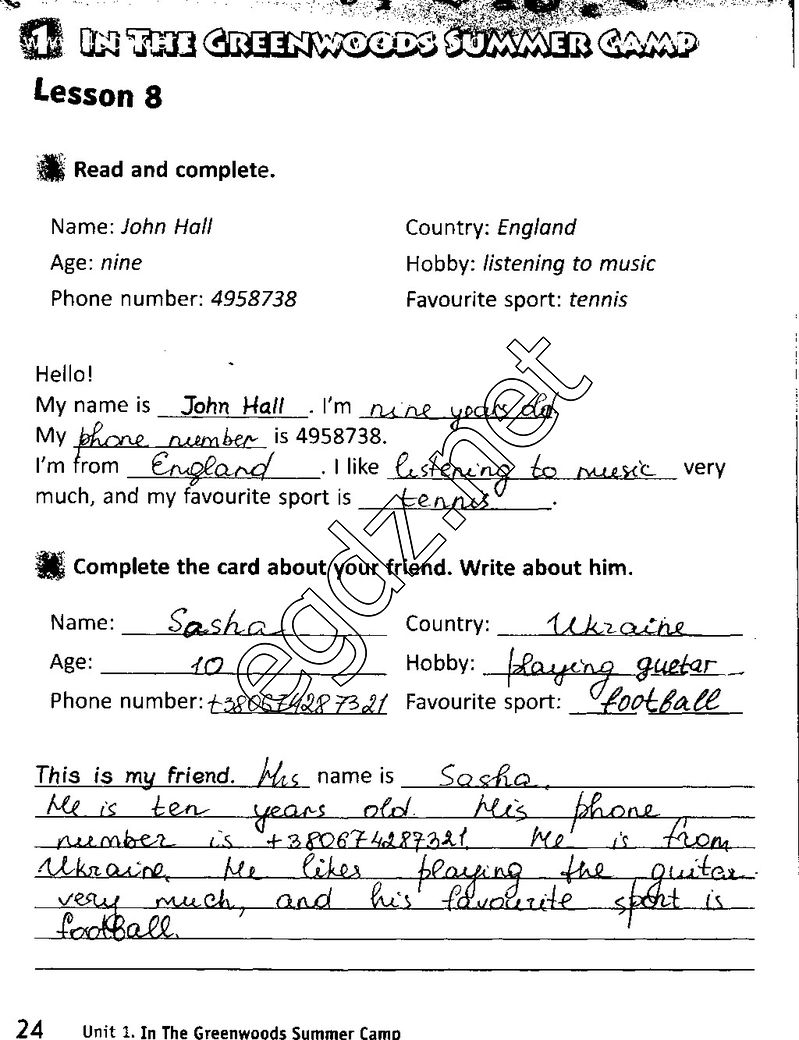 1 IN THE GREENWOODS SUMMER CAMP
Lesson 8
Read and complete.
Name: John Hall Country: England
Age: nine Hobby: listening to music
Phone number: 4958738 Favourite sport: tennis
Hello!
My name is John Hall. I'm nine years old
My phone number is 4958738.
I'm from England. I like listening to music very
much, and my favourite sport is tennis.
Complete the card about your friend. Write about him.
Name: Sasha Country: Ukraine
Age: 10 Hobby: playing guetar
Phone number: +380674287321 Favourite sport: football
This is my friend. His name is Sasha.
He is ten years old. His phone
number is +380674287321. He is from
Ukraine. He likes playing the guitar
very much, and his favourite sport is
football.
egdz.net
24 Unit 1. In The Greenwoods Summer Camp